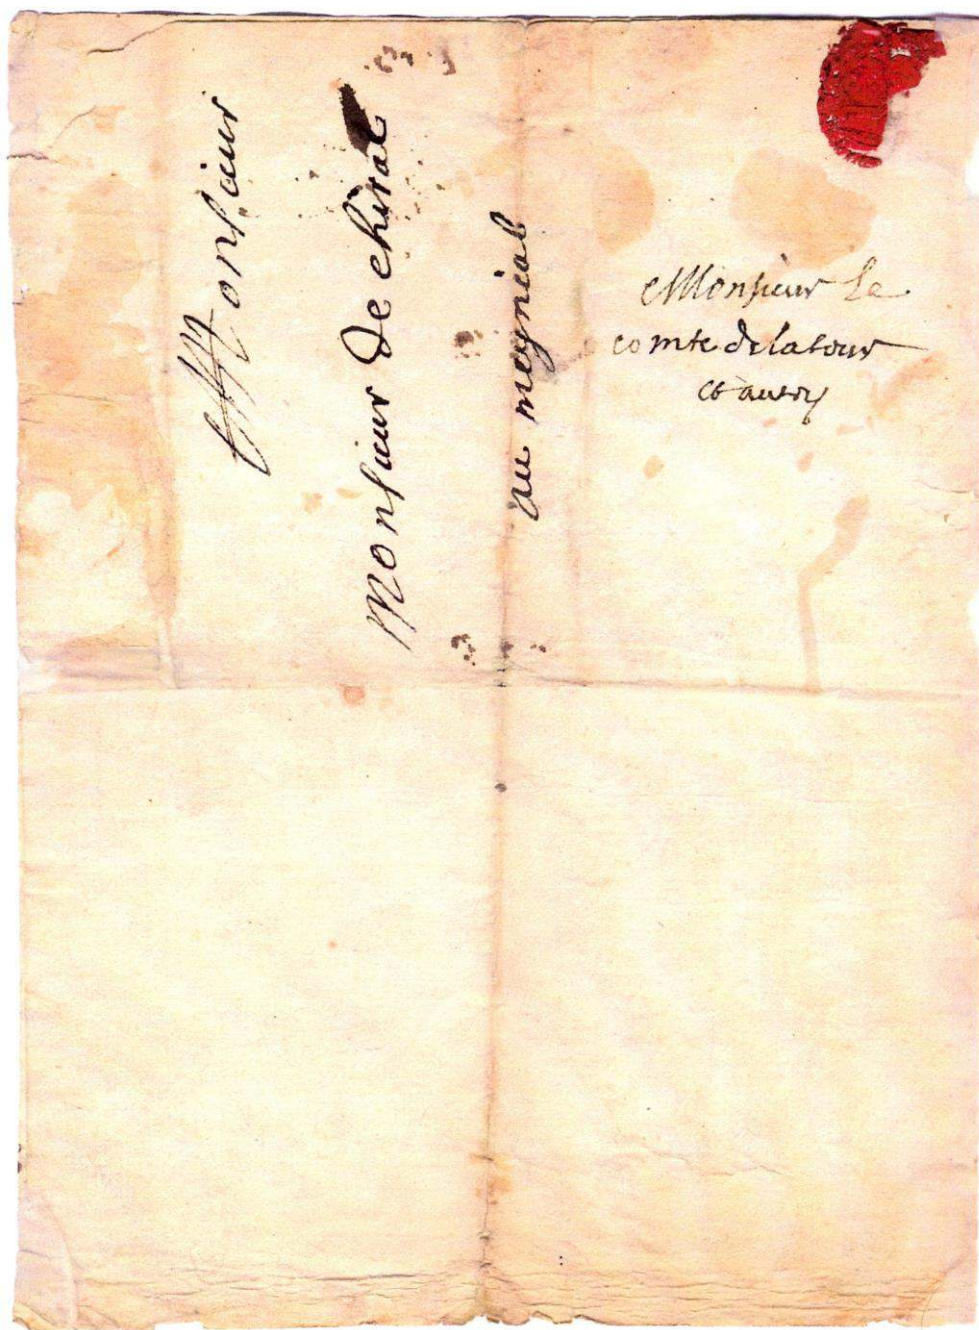 Monsieur
Monsieur de chirat
au meynial
Monsieur Le
comte delatour